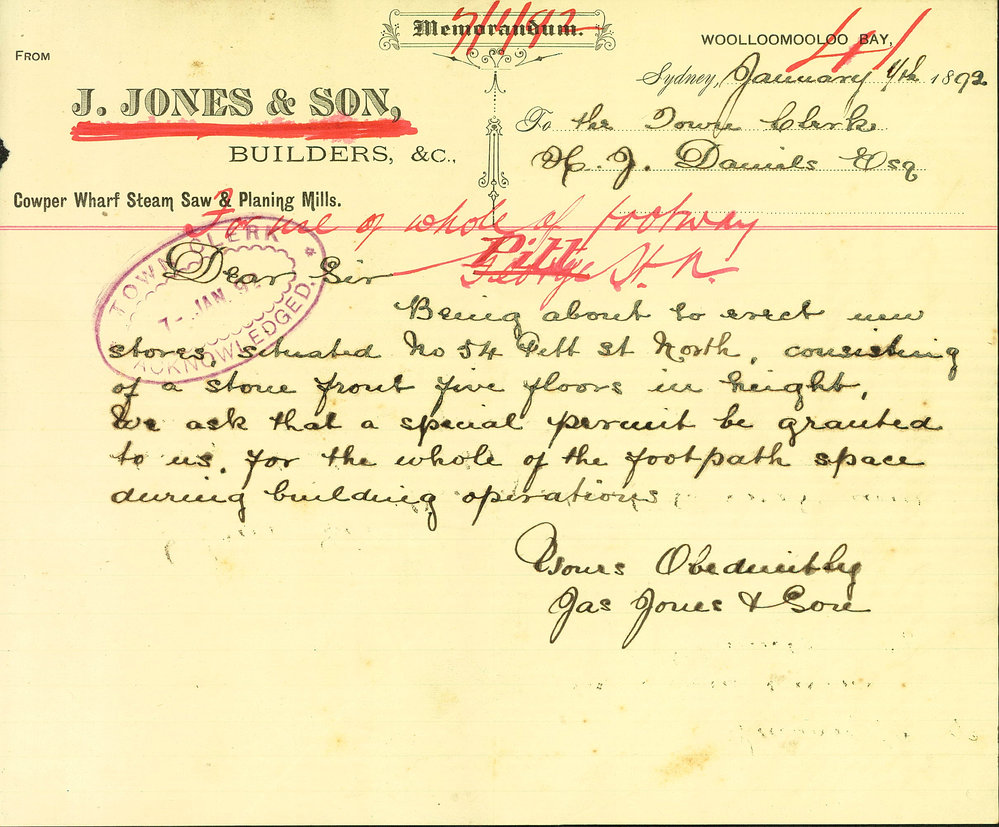 Memorandum.
7/1/92
41
FROM
WOOLLOOMOOLOO BAY,
Sydney, January 1892
J. JONES & SON,
BUILDERS, &C.,
Cowper Wharf Steam Saw & Planing Mills.
To the Town Clerk
H. J. Daniels Esq
For use of whole of footway
Pitt
George St. N.
TOWN CLERK
7 - JAN. 92
ACKNOWLEDGED.
Dear Sir
Being about to erect new
stores, situated No 54 Pitt St North, consisting
of a stone front five floors in height,
We ask that a special permit be granted
to us, for the whole of the footpath space
during building operations
Yours Obediently
Jas Jones & Son